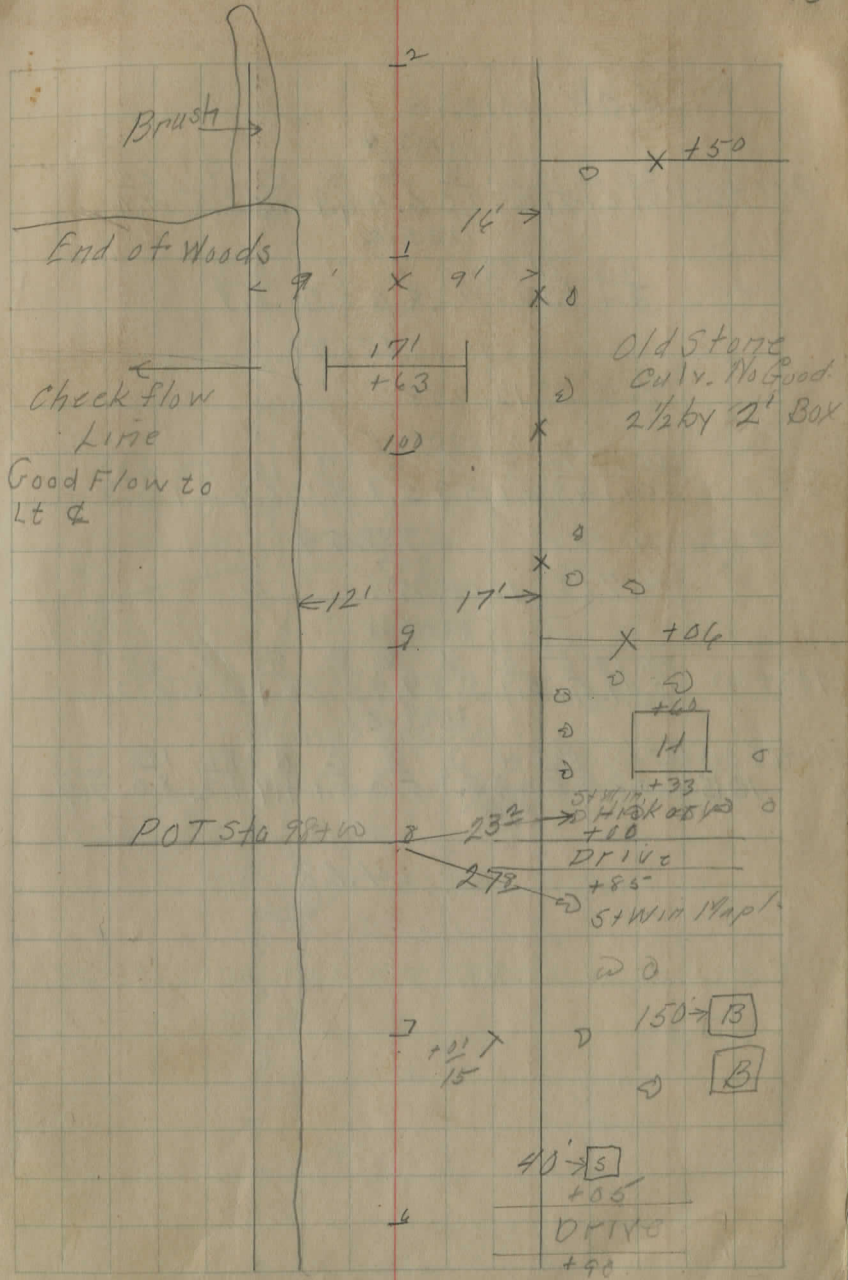 2
Brush
+50
16'
End of Woods
1
9'
9'
17'
+63
Old Stone
Culv. No Good.
2 1/2 by 2' Box
Check flow
Line
Good Flow to
Lt ℄
100
12'
17'
9
+06
+60
H
+33
23²
POT Sta 98+00
8
+00
Drive
+85
St Win Mapl.
7
150'
B
+01
15
B
40'
S
+05
Drive
6
+90